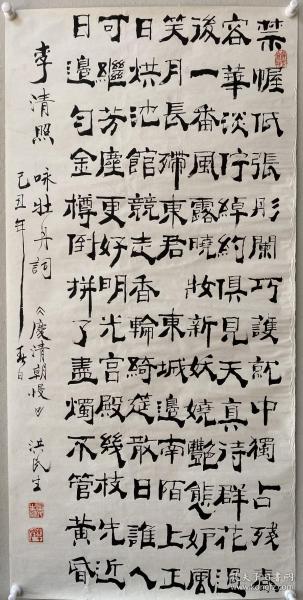 禁幄低張彤闌巧護就中獨占殘春
容華淡佇綽約俱見天真待群花過
後一番風露曉妝新妖嬈艷態妒風
笑月長殢東君 東城邊南陌上正
日烘池館競走香輪綺筵散日誰人
可繼芳塵更好明光宮殿幾枝先近
日邊勻金樽倒拼了盡燭不管黃昏
李清照 咏牡丹詞《慶清朝慢》 洪民生
己丑年春日